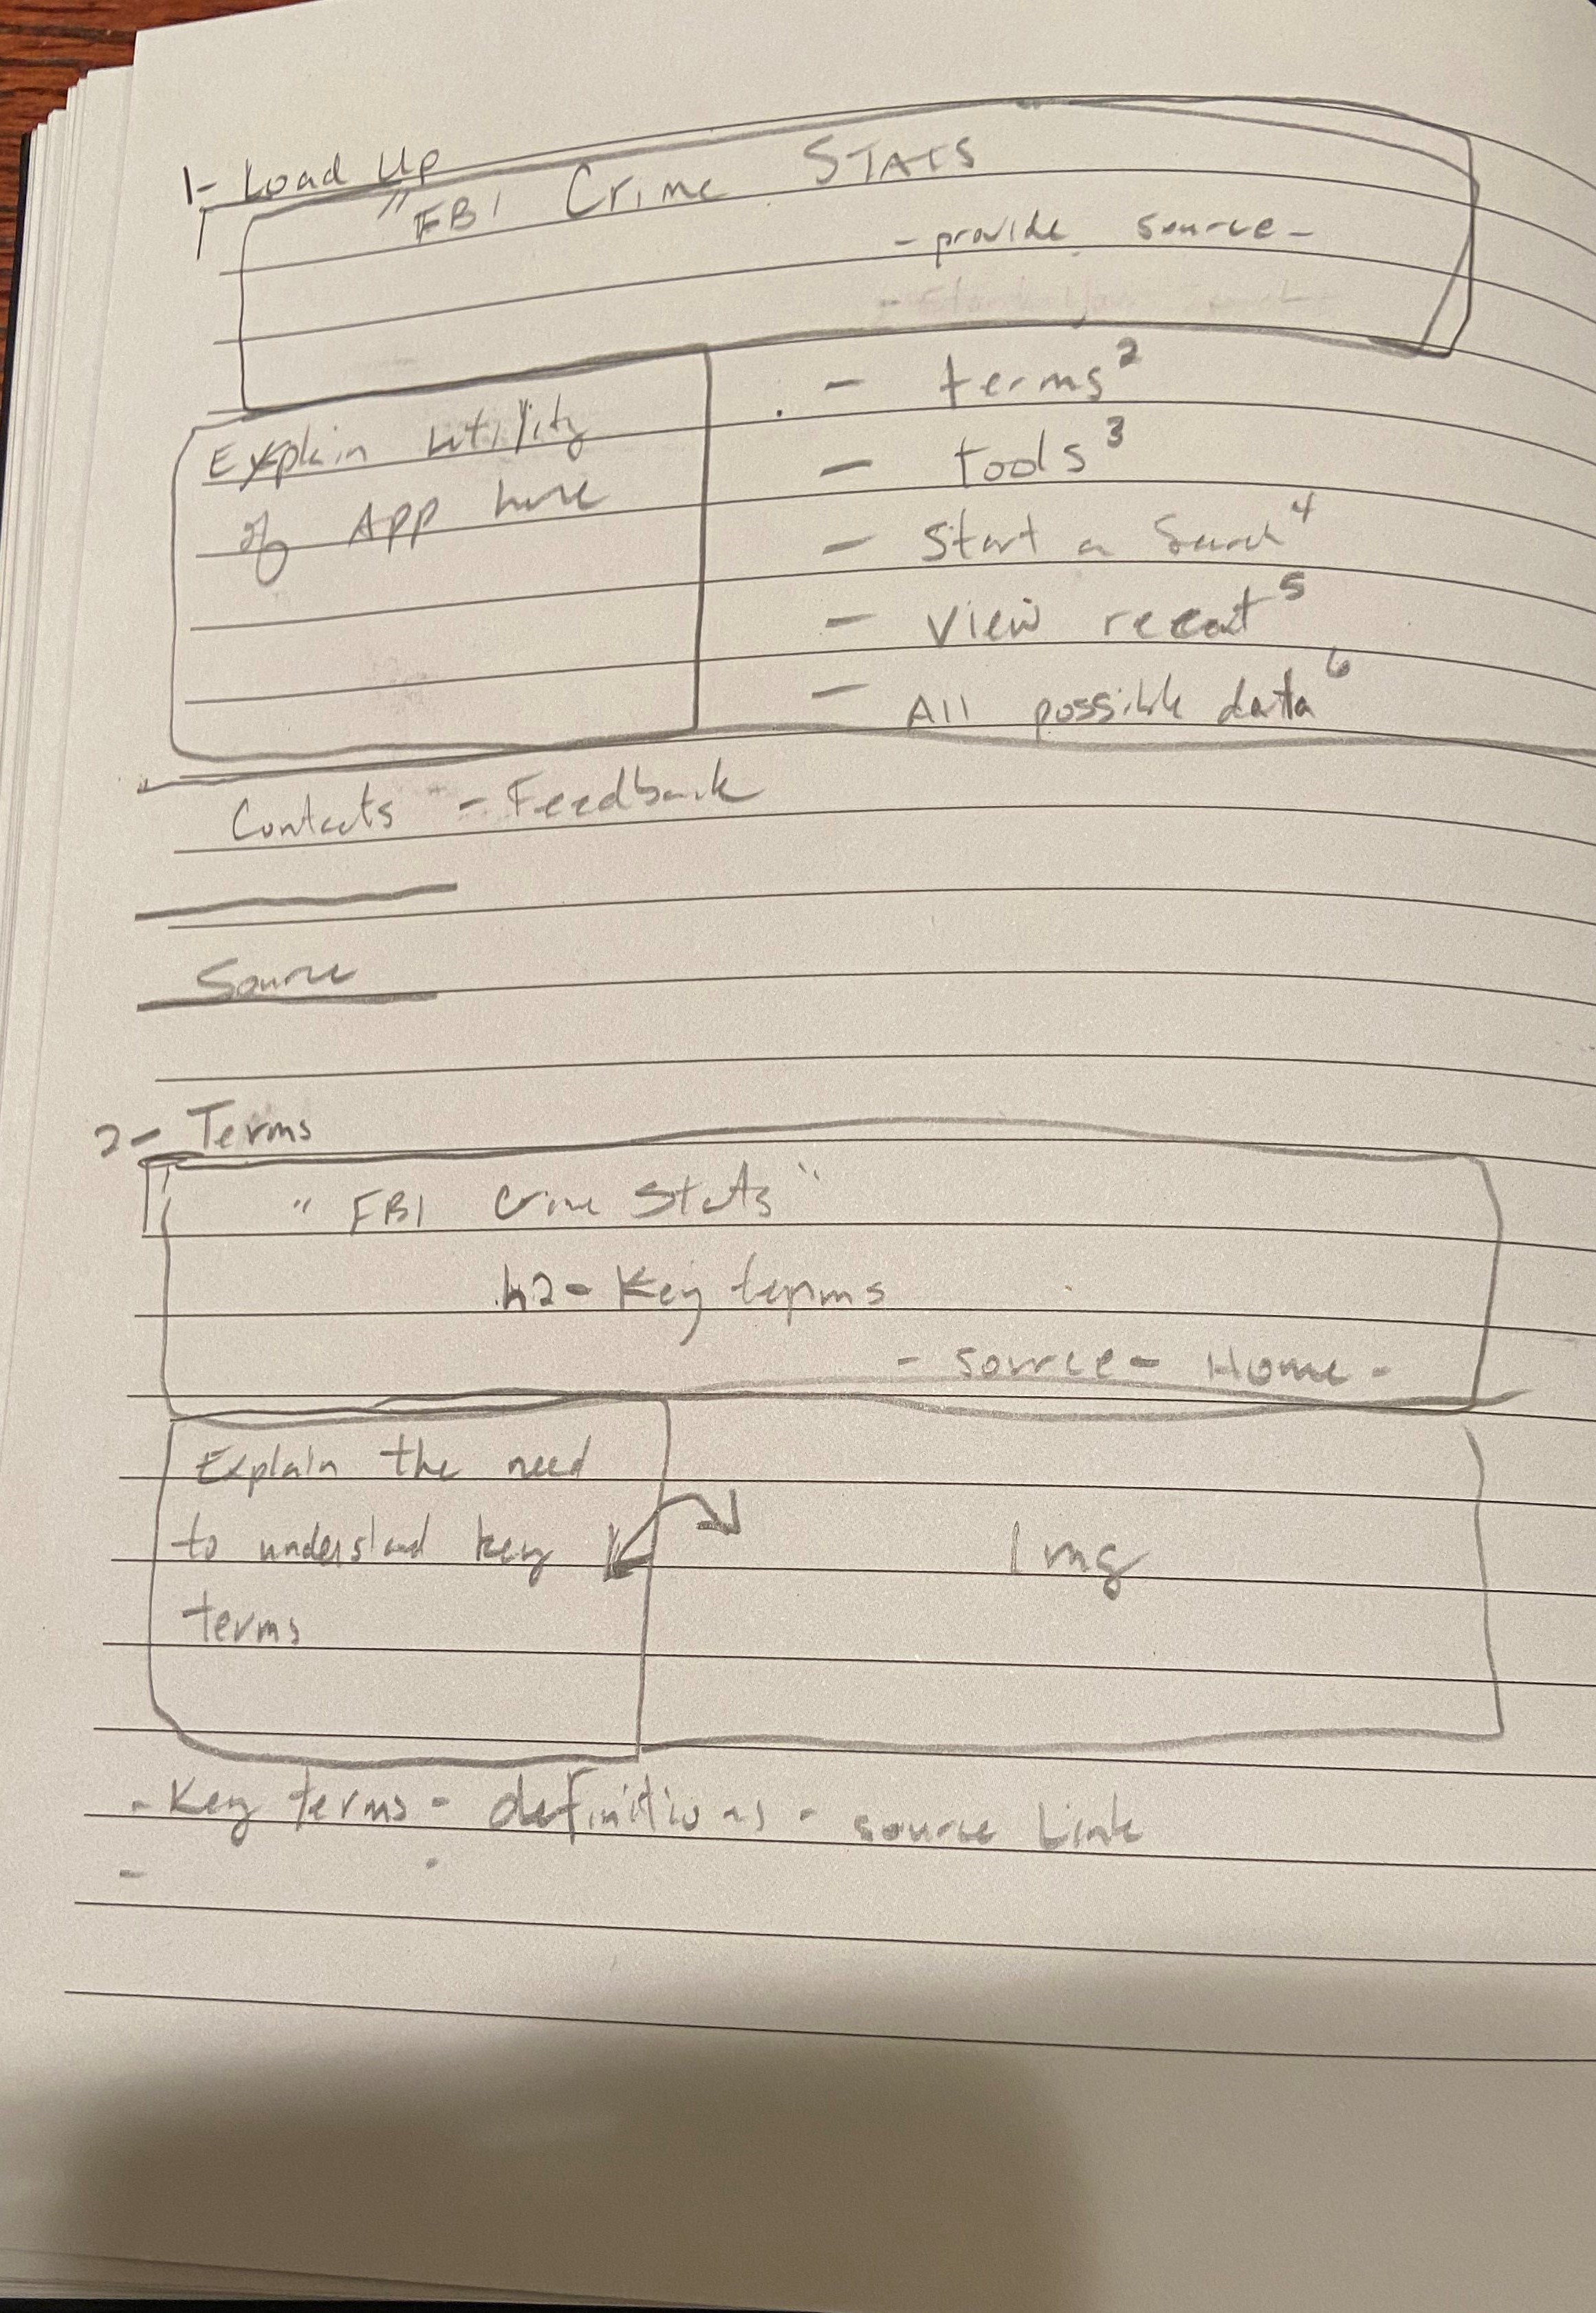 1- Load Up
"FBI Crime STATS
- provide source -
- terms²
- tools³
- Start a Search⁴
- View recent⁵
- All possible data⁶
Explain utility
of App here
Contacts - Feedback
Source
2- Terms
"FBI Crime Stats"
h2- Key terms
- source - Home -
Explain the need
to understand key
terms
Img
- Key terms - definitions - source Link
-